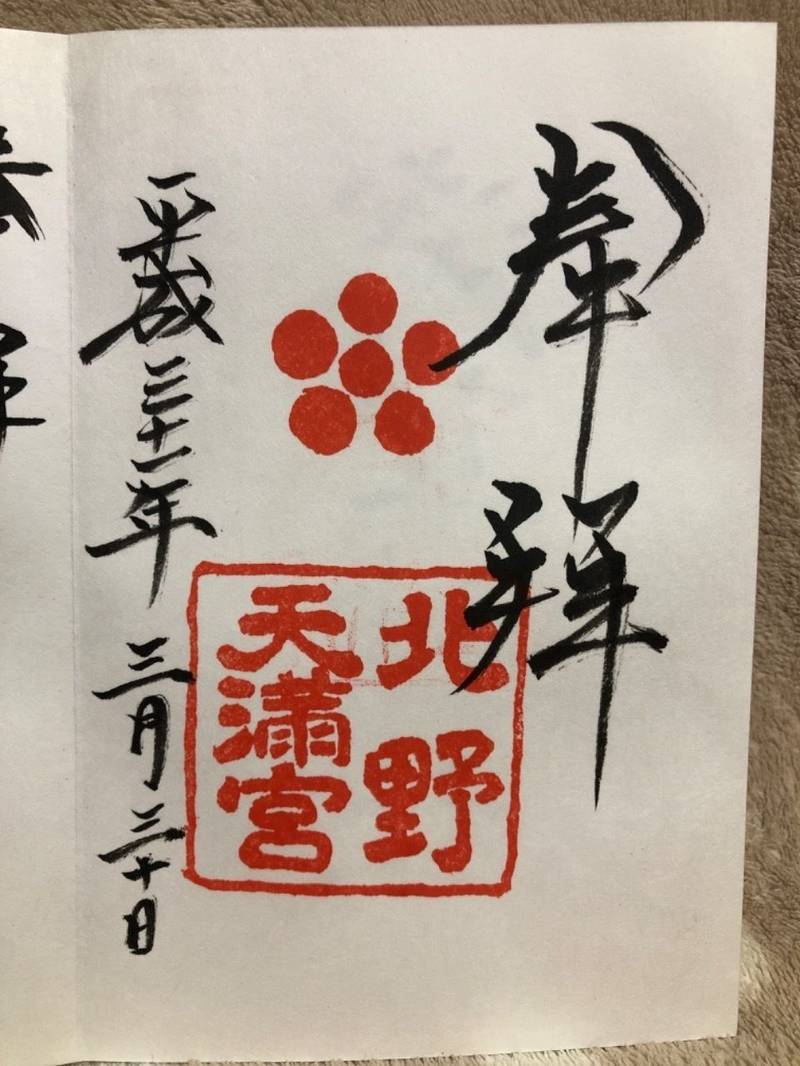 奉拜
北野
天満宮
平成三十一年三月三十日